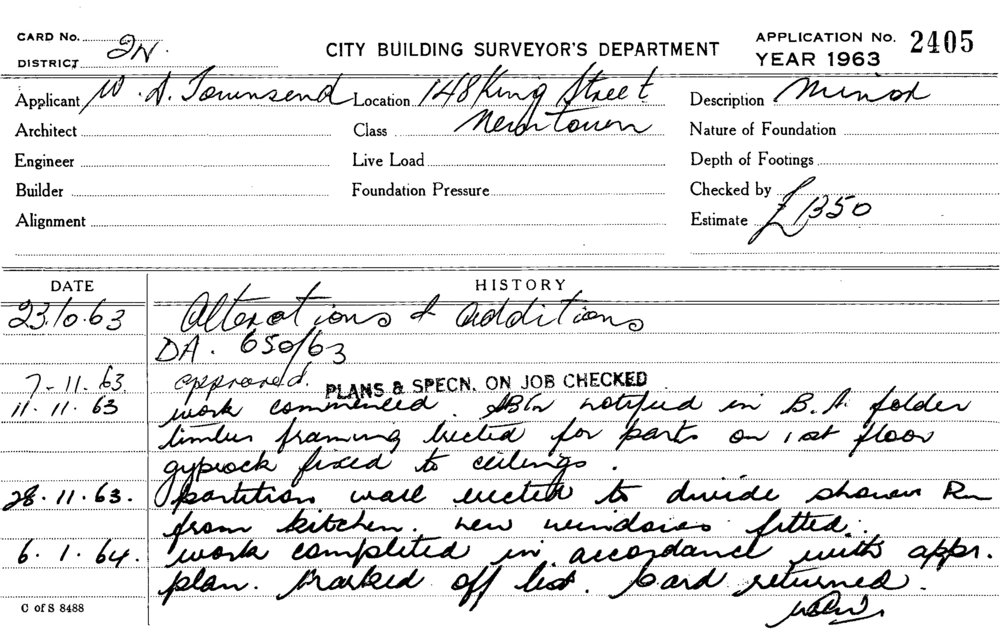 CARD No.
DISTRICT 2N.
CITY BUILDING SURVEYOR'S DEPARTMENT
APPLICATION No. 2405
YEAR 1963
Applicant W. D. Townsend Location 148 King Street Description Minor
Architect Class Newtown Nature of Foundation
Engineer Live Load Depth of Footings
Builder Foundation Pressure Checked by
Alignment Estimate £1350
DATE HISTORY
23.10.63 Alterations & additions
DA. 650/63
7-11.63 approved. PLANS & SPECN. ON JOB CHECKED
11.11.63 work commenced. notified in B.A. folder
timber framing erected for parts on 1st floor
gyprock fixed to ceilings.
28.11.63. partition wall erected to divide shower Rm
from kitchen. new windows fitted.
6.1.64. work completed in accordance with appr.
plan. Marked off list. Card returned.
C of S 8488